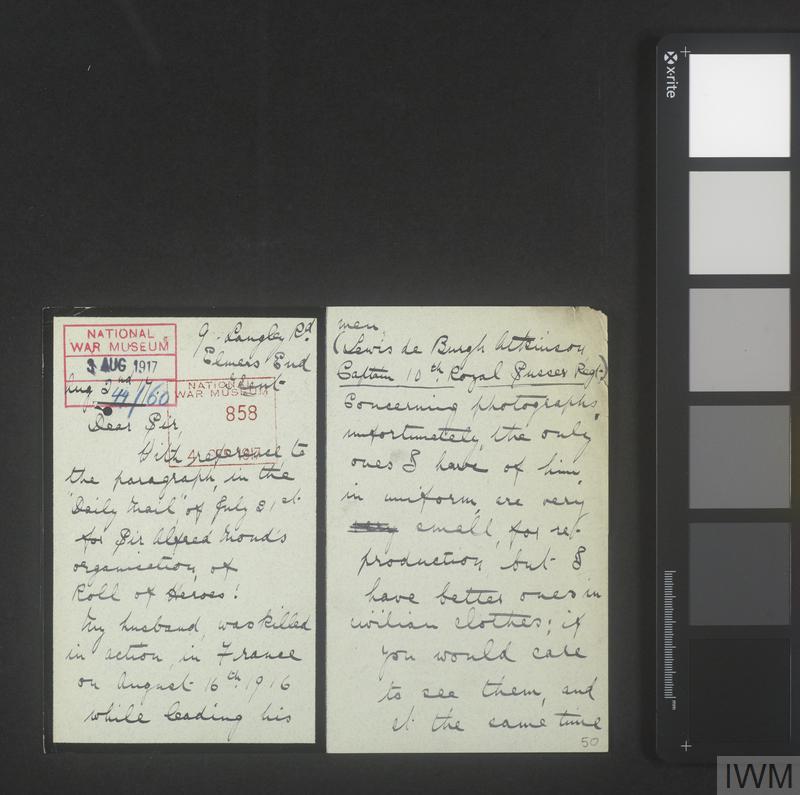 NATIONAL
WAR MUSEUM
3 AUG 1917
9. Langley Rd
Elmers End
Aug 2nd 17
49/160
NATIONAL
WAR MUSEUM
858
1917
Dear Sir,
With reference to
the paragraph, in the
"Daily Mail" of July 31st
for Sir Alfred Mond's
organisation, of
Roll of Heroes!
My husband, was killed
in action, in France
on August 16th 1916
while leading his
men,
(Lewis de Burgh Atkinson
Captain 10th Royal Sussex Regt.)
Concerning photographs,
unfortunately, the only
ones I have of him,
in uniform, are very
very small, for re-
production, but I
have better ones in
civilian clothes; if
you would care
to see them, and
at the same time
50
x-rite
mm
IWM